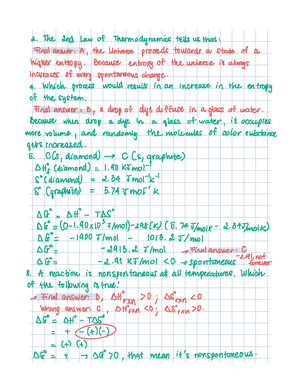 2. The 2nd Law of Thermodynamics tells us that:
Final answer: A, the Universe proceeds towards a state of a
higher entropy. Because entropy of the universe is always
increases of every spontaneous change.
4. Which process would results in an increase in the entropy
of the system.
Final answer: B, a drop of dye diffuse in a glass of water.
Because when drop a dye in a glass of water, it occupies
more volume, and randomly the molecules of color substance
gets increased.
5. C(s, diamond) → C (s, graphite)
ΔH°f (diamond) = 1.90 KJ mol⁻¹
S° (diamond) = 2.34 J mol⁻¹k⁻¹
S° (graphite) = 5.74 J mol⁻¹k
ΔG° = ΔH° - TΔS°
ΔG° = (0-1.90x10³ J/mol)-298(K) (5.74 J/molK - 2.34J/molK)
ΔG° = -1900 J/mol - 1013.2 J/mol
ΔG° = -2913.2 J/mol → Final answer: C
ΔG° = -2.91 KJ/mol <0 → spontaneous -2.91, not forever
8. A reaction is nonspontaneous at all temperatures. Which
of the following is true?
→ Final answer: D, ΔH°rxn >0 ; ΔS°rxn <0
Wrong answer: C, ΔH°rxn <0; ΔS°rxn >0.
ΔG° = ΔH° - TΔS°
= + -(+)(-)
= (+) (+)
ΔG° = + → ΔG° >0, that mean it's nonspontaneous.